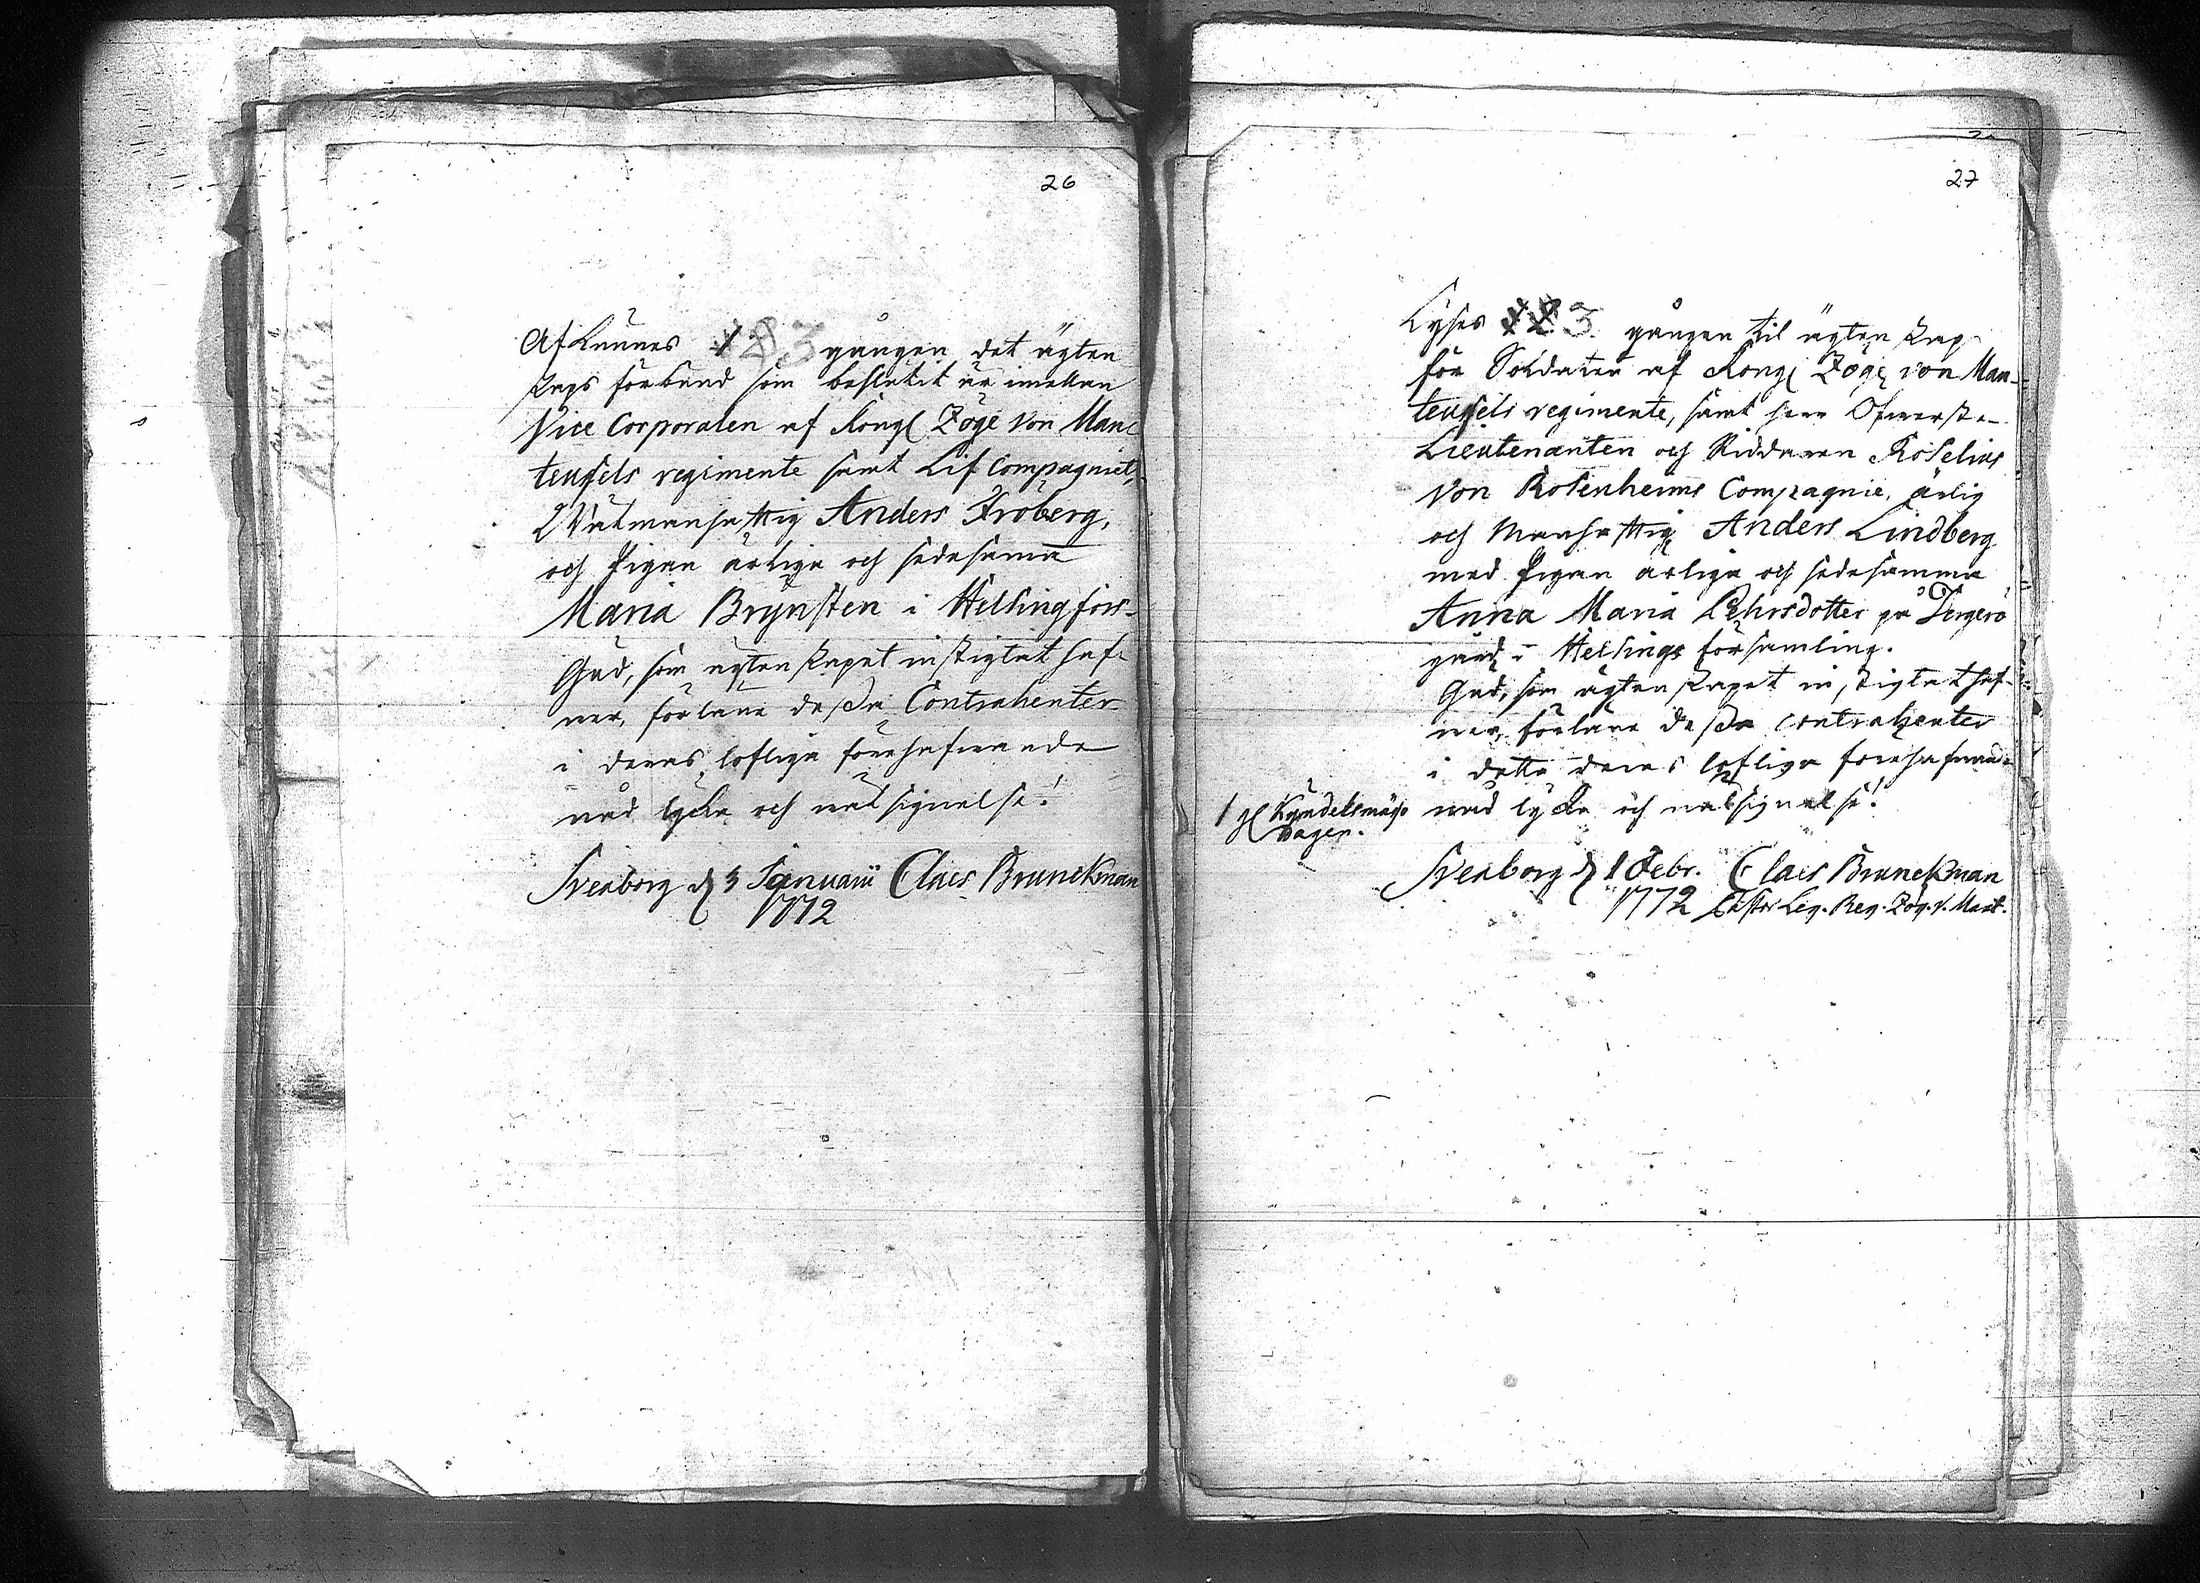 26
Afkunnes 1 2 3 gången det ägten
skaps förbund som beslutit är imellan
Vice Corporalen af Kongl Zöge von Man-
teufels regimente samt Lif Compagniet,
Wälmanhaftig Anders Fröberg,
och Pigan ärliga och sedesamma
Maria Brynsten i Helsingfors.
Gud, som ägtenskapet instigtat haf-
ver, förläne dessa Contrahenter
i deras lofliga förehafvande
nåd lycka och välsignelse!
Sveaborg d 3 Januarii Claes Brunckman
1772
27
Lyses 1 2 3 gången til ägtenskap
för Soldaten af Kongl Zöge von Man-
teufels regimente, samt herr Öfwerste
Lieutenanten och Riddaren Roselius
von Rosenheims Compagnie, ärlig
och Manhaftig Anders Lindberg
med Pigan ärliga och sedesamma
Anna Maria Lehrsdotter på Tergerö
gård i Helsinge församling.
Gud, som ägtenskapet instigtat haf-
ver, förläne dessa contrahenter
i detta deras lofliga förehafvande
nåd lycka och välsignelse!
Kyndelsmäss
dagen.
Sveaborg d 1 Febr. Claes Brunckman
1772 Pastor Leg. Reg. Zög. v. Mant.